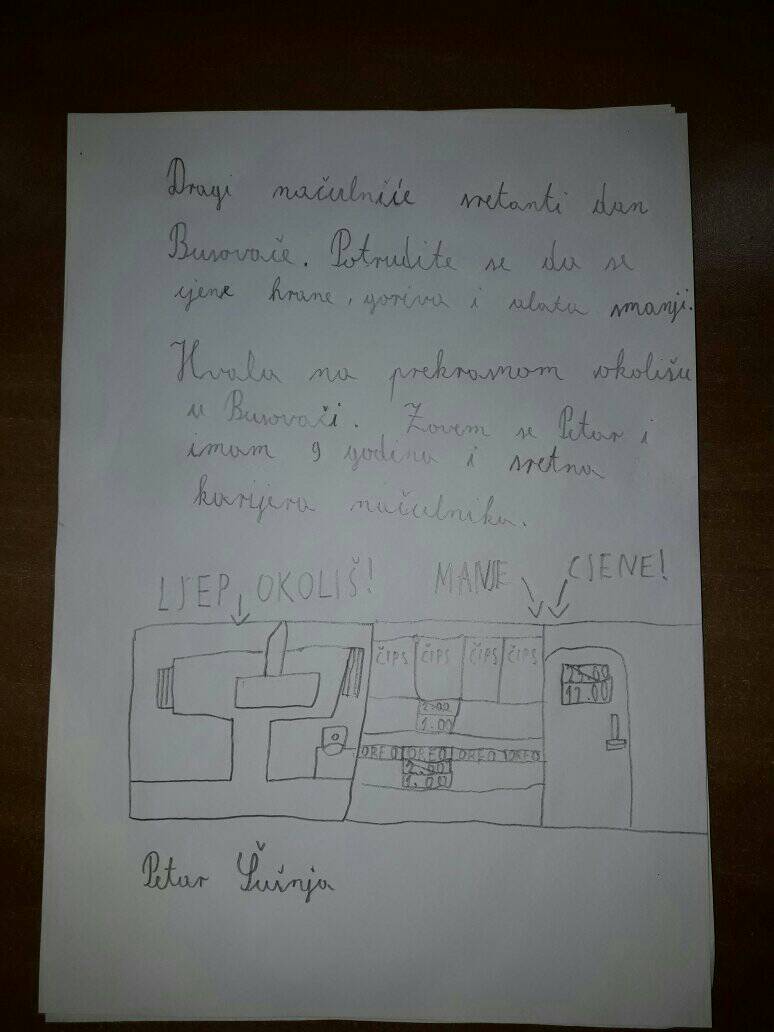 Dragi načulniće sretanti dan
Busovače. Potrudite se da se
cjene hrane, goriva i alata smanji.
Hvala na prekrasnom okolišu
u Busovači. Zovem se Petar i
imam 9 godina i sretna
karijera načulnika.
LJEP OKOLIŠ! MANJE CJENE!
ČIPS ČIPS ČIPS ČIPS
2.00
1.00
OREO OREO OREO OREO
2.00
1.00
23.00
12.00
Petar Šušnja